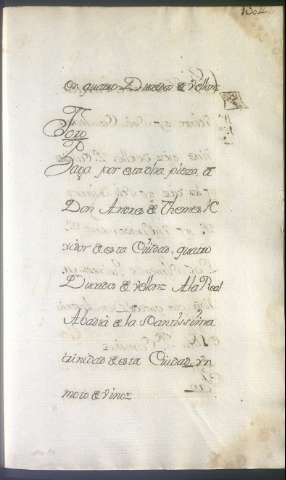 os, quatro Ducados de vellon
Foro
Paga por esta dha, pieza, a
Don Arias de Themes, Re
xidor de esta Ciudad, quatro
Ducados de vellon, A la Real
Abadia de la Santissima
trinidad de esta Ciudad, Vn
moio de vino,,